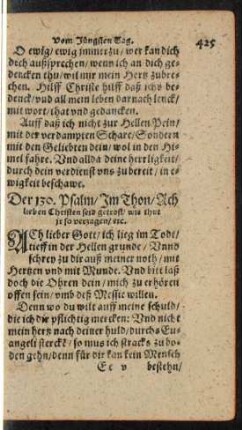 Vom Jüngsten Tag. 425
O ewig/ ewig immerzu/ wer kan dich
doch außsprechen/ wenn ich an dich ge-
dencken thu/ wil mir mein Hertz zubre-
chen. Hilff Christe hilff daß ichs be-
denck/ vnd all mein leben darnach lenck/
mit wort/ that vnd gedancken.
Auff daß ich nicht zur Hellen Pein/
mit der verdampten Schare/ Sondern
mit den Geliebten dein/ wol in den Hi-
mel fahre. Vnd allda deine herrligkeit/
durch dein verdienst vns zu bereit/ in e-
wigkeit beschawe.
Der 130. Psalm/ Im Thon/ Ach
lieben Christen seid getrost/ wie thut
jr so verzagen/ etc.
ACh lieber Gott/ ich lieg im Todt/
tieff in der Hellen grunde/ Vnnd
schrey zu dir auß meiner noth/ mit
Hertzen vnd mit Munde. Vnd bitt laß
doch die Ohren dein/ mich zu erhören
offen sein/ vmb deß Messie willen.
Denn wo du wilt auff meine schuld/
die ich die pflichtig mercken: Vnd nicht
mein hertz nach deiner huld/ durchs Eu-
angeli sterckt/ so mus ich stracks zu bo-
den gehn/ denn für dir kan kein Mensch
Ee v bestehn/